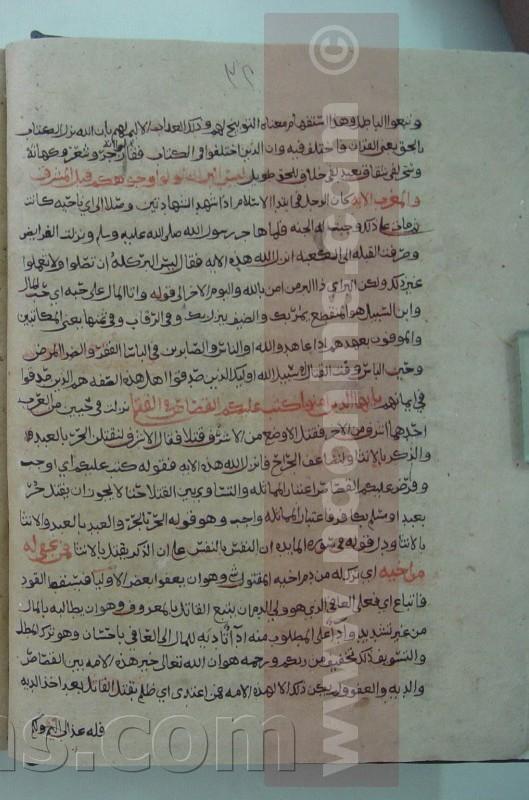 ٣٢
وتتبعوا الباطل وهذا استفهام معناه التوبيخ لهم وذلك العذاب الاليم لهم بان الله نزل الكتاب
بالحق يعنى القران واختلف فيه وان الذين اختلفوا فى الكتاب فقالوا انه رجز وشعر وكهانة
وسحر لفى شقاق بعيد لفى خلاف للحق طويل ليس البر ان تولوا وجوهكم قبل المشرق
والمغرب الاية كان الرجل فى ابتدا الاسلام اذا شهد الشهادتين وصلا الى اى ناحيه كانت
ثم مات على ذلك وجبت له الجنه فلما هاجر رسول الله صلى الله عليه وسلم ونزلت الفرايض
وصرفت القبله الى الكعبه انزل الله هذه الايه فقال ليس البر كله ان تصلوا ولا تعملوا
غير ذلك ولكن البر اى ذا البر من امن بالله واليوم الاخر الى قوله واتا المال على حبه اى حب المال
وابن السبيل هو المنقطع يمر بك والضيف ينزل بك وفى الرقاب وفى ثمنها يعنى المكاتبين
والموفون بعهدهم اذا عاهدوا الله او الناس والصابرين فى الباسا الفقر والضرا المرض
وحين الباس وقت القتال فى سبيل الله اوليك الذين صدقوا اهل هذه الصفه هم الذين صدقوا
فى ايمانهم يايها الذين امنوا كتب عليكم القصاص فى القتلى نزلت فى حيين من العرب
احدهما اشرف من الاخر فقتل الاوضع من الاشرف قتلا فقال الاشرف لنقتلن الحر بالعبد
والذكر بالانثا ولنضاعف الجراح فانزل الله هذه الايه فقوله كتب عليكم اى اوجب
وفرض عليكم القصاص اعتبار المماثله والتساوى بين القتلا حتا لا يجوز ان يقتل حر
بعبد او مسلم بكافر فاعتبار المماثله واجب وهو قوله الحر بالحر والعبد بالعبد والانثا
بالانثا ودل قوله فى سورة المايده ان النفس بالنفس على ان الذكر يقتل بالانثا فمن عفى له
من اخيه اى ترك له من دم اخيه المقتول شى وهو ان يعفوا بعض الاوليا فيسقط القود
فاتباع اى فعلى العافى الذى هو ولى الدم ان يتبع القاتل بالمعروف وهو ان يطالبه بالمال
من غير تشديد واداء على المطلوب منه اداء تاديه للمال الى العافى باحسان وهو ترك المطل
والتسويف ذلك تخفيف من ربكم ورحمه هو ان الله تعالى خير هذه الامه بين القصاص
والديه والعفو ولم يكن ذلك الا لهذه الامه فمن اعتدى اى ظلم بقتل القاتل بعد اخذ الديه
فله عذاب اليم ولكم
www.noorlins.com ©
ns.com